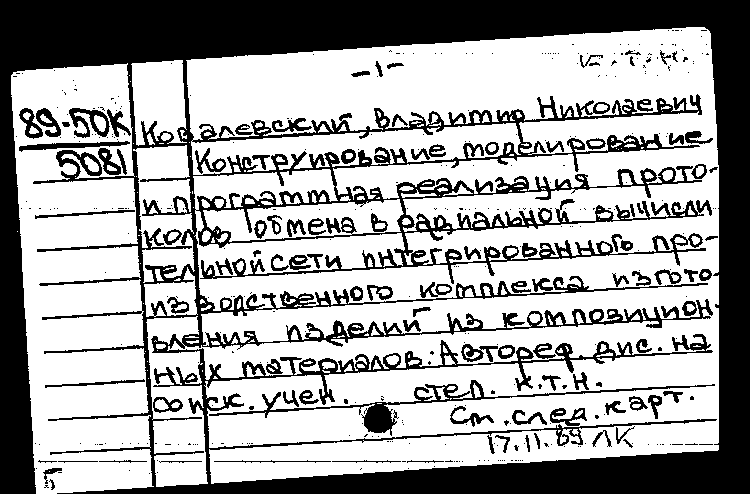 -1-
к.т.н.
89-50К
5081
Ковалевский, Владимир Николаевич
Конструирование, моделирование
и программная реализация прото-
колов обмена в радиальной вычисли
тельной сети интегрированного про-
изводственного комплекса изгото-
вления изделий из композицион-
ных материалов: Автореф. дис. на
соиск. учен. степ. к.т.н.
См. след. карт.
17.11.89 ЛК
Б